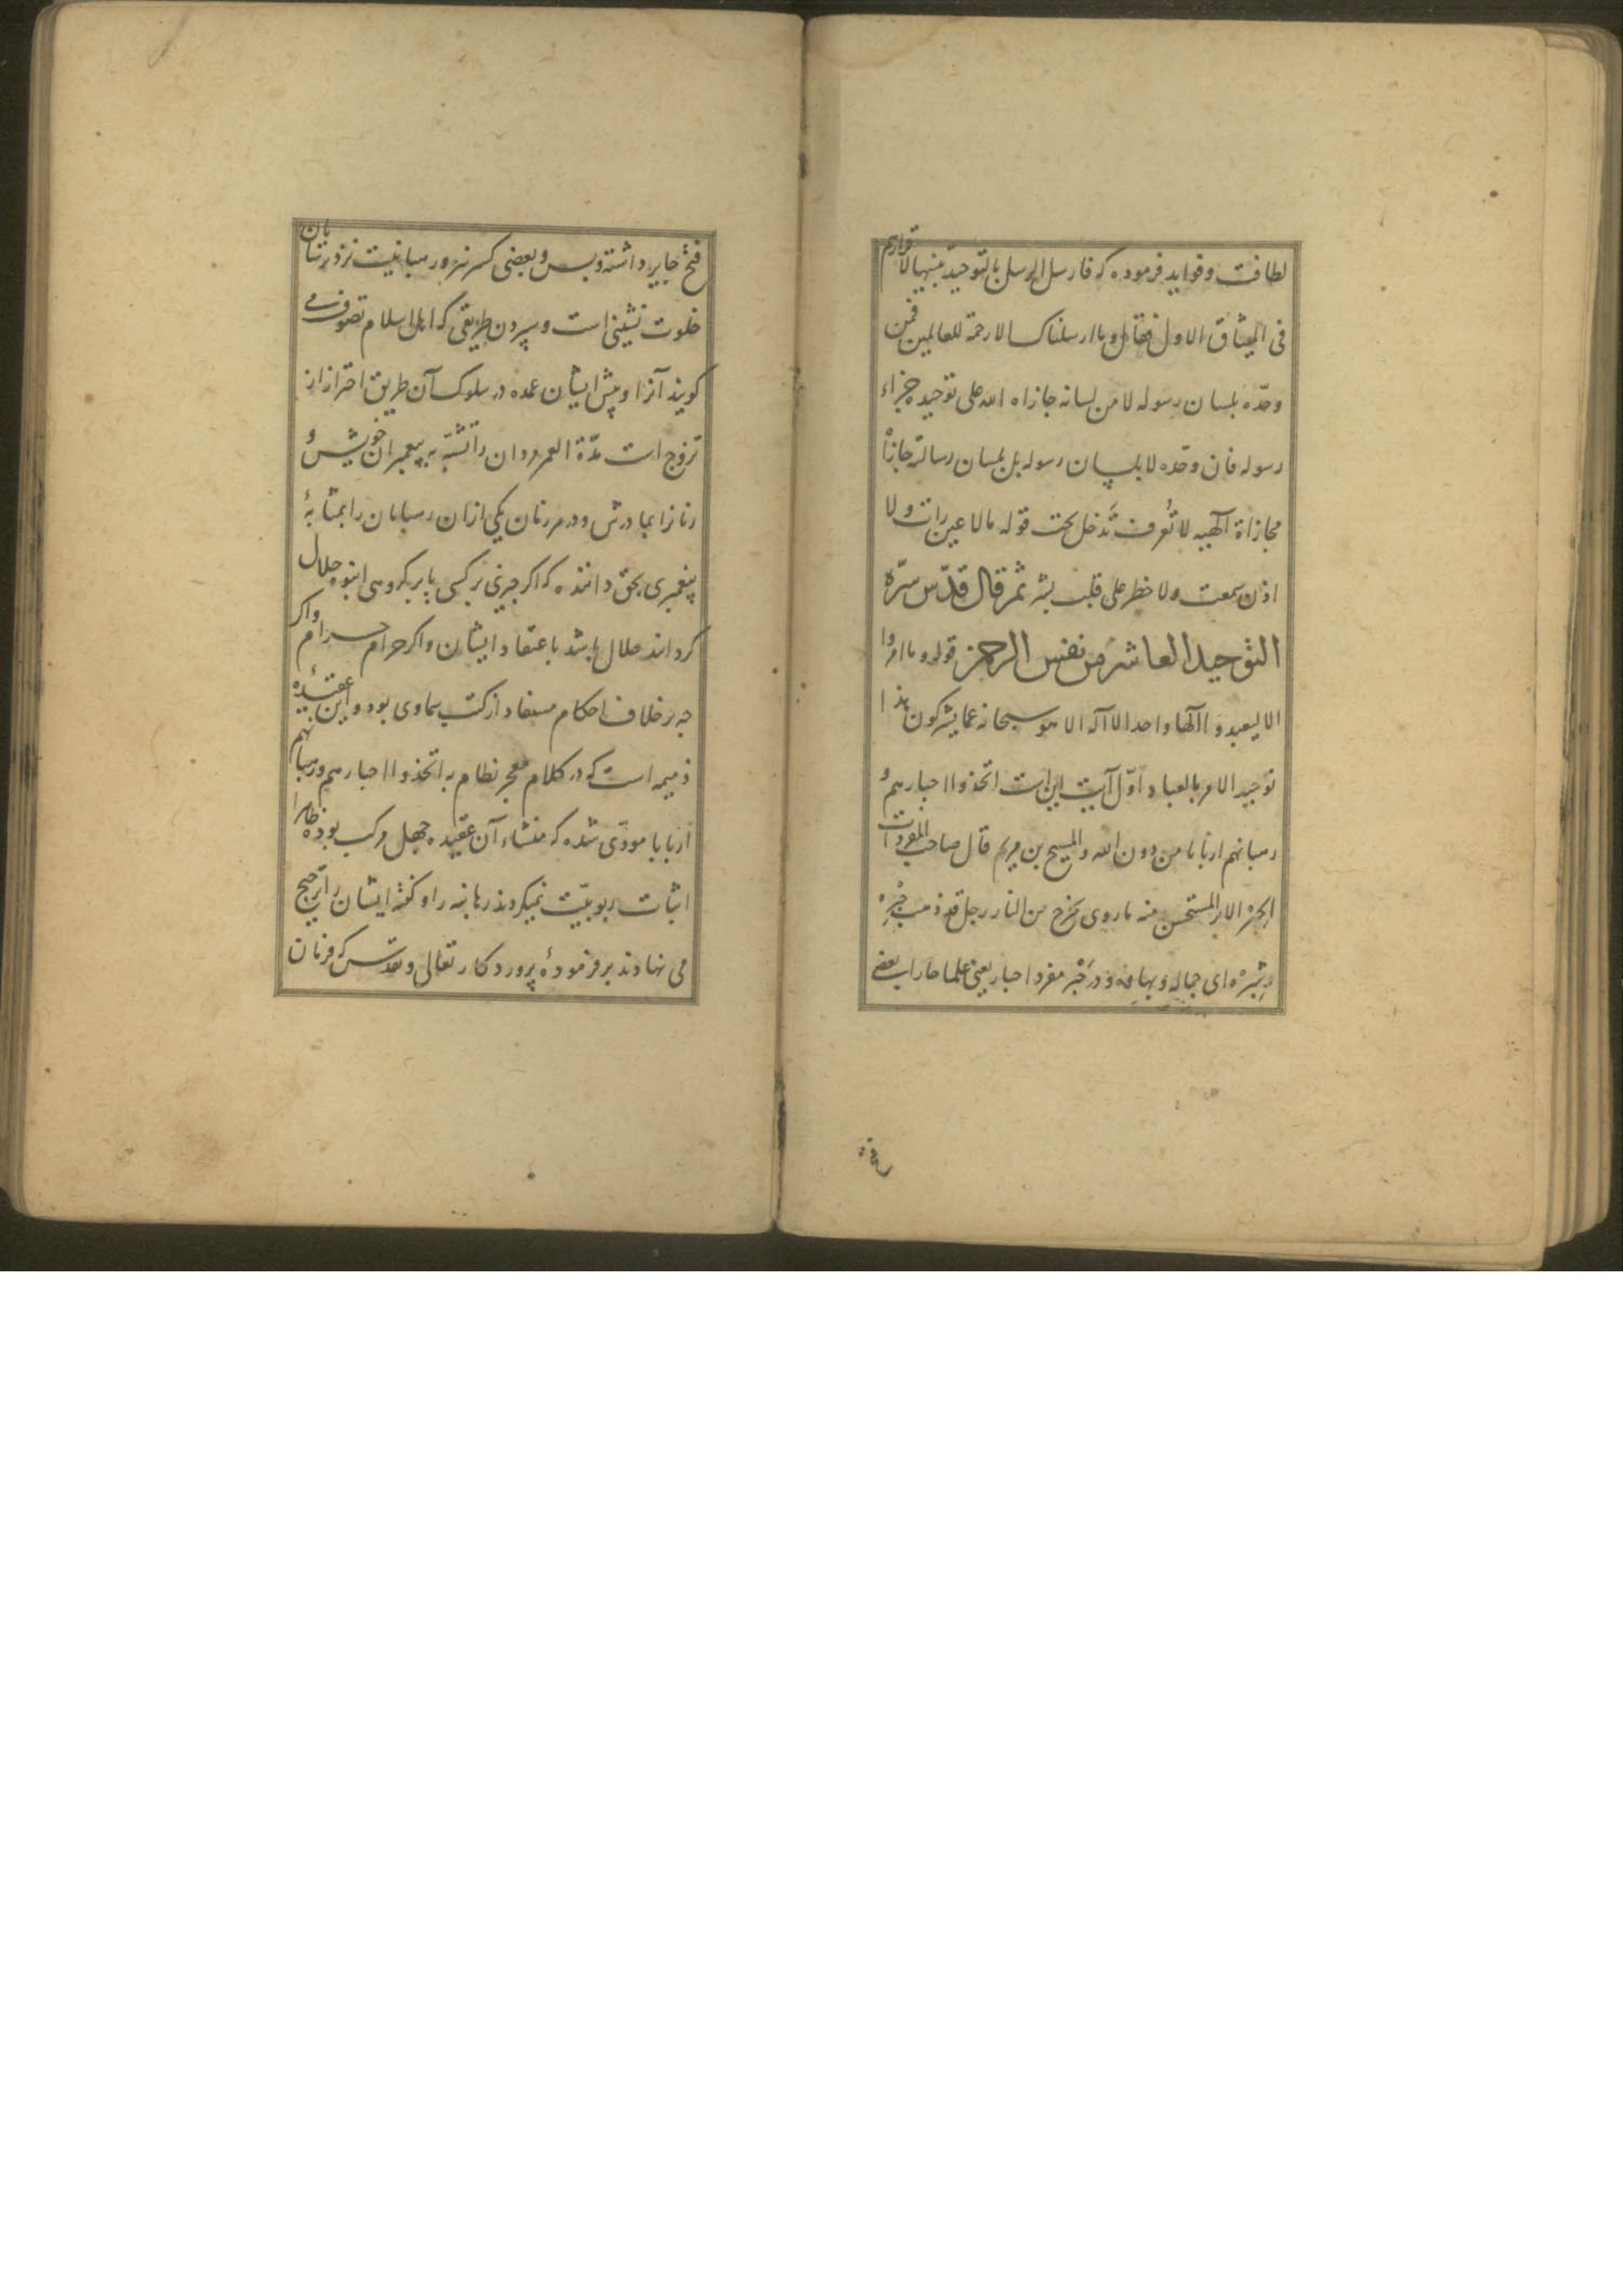 لطافت و فواید فرموده که فارسل الرسل بالتوحید تنبیها لاقرارهم
فی المیثاق الاول فقال و ما ارسلناک الا رحمة للعالمین فمن
وحّده بلسان رسوله لا من لسانه جازاه الله علی توحیده جزاء
رسوله فان وحّده لا بلسان رسوله بل بلسان رسالته جازاه
مجازاة آلهیه لا تُعرف تَدخل تحت قوله ما لا عین رات و لا
اذن سمعت و لا خطر علی قلب بشر ثم قال قدّس سرّه
التوحید العاشر من نفس الرحمن قوله و ما امروا
الا لیعبدوا آلها واحدا لا آله الا هو سبحانه عما یشرکون هذا
توحید الامر بالعباد اوّل آیت این است اتخذوا احبارهم و
رهبانهم اربابا من دون الله و المسیح بن مریم قال صاحب المفردات
الحِبر الاثر المستحسن منه ما روی یخرج من النار رجل قد ذهب حِبْرُه
و سِبْرُه ای جماله و بهاؤه و در حَبْر مفرد احبار یعنی علما حا را بعضی
فتح
فتح جایز داشته و بس و بعضی کسر نیز و رهبانیت نزد ترسایان
خلوت نشینی است و سپردن طریقی که اهل اسلام تصوف می
کویند آنرا و پیش ایشان عمده در سلوک آن طریق احتراز از
تزوج است مدّة العمر مردان را تشبّه به پیغمبران خویش و
زنانرا بمادرش و در هر زمان یکی ازان رهبانان را بمثابهٔ
پیغمبری بحق دانند که اکر چیزی بر کسی یا بر کروهی انبوه حلال
کرداند حلال باشد باعتقاد ایشان و اکر حرام حرام و اکر
چه بر خلاف احکام مستفاد از کتب سماوی بود و این عقیدهٔ
ذمیمه است که در کلام معجز نظام به اتخذوا احبارهم و رهبانهم
اربابا مودّی شده که منشاء آن عقیده جهل مرکب بوده ظاهرا
اثبات ربوبیّت نمیکردند رهابنه را و کفتهٔ ایشان را ترجیح
می نهادند بر فرمودهٔ پروردکار تعالی و تقدس که فرمان